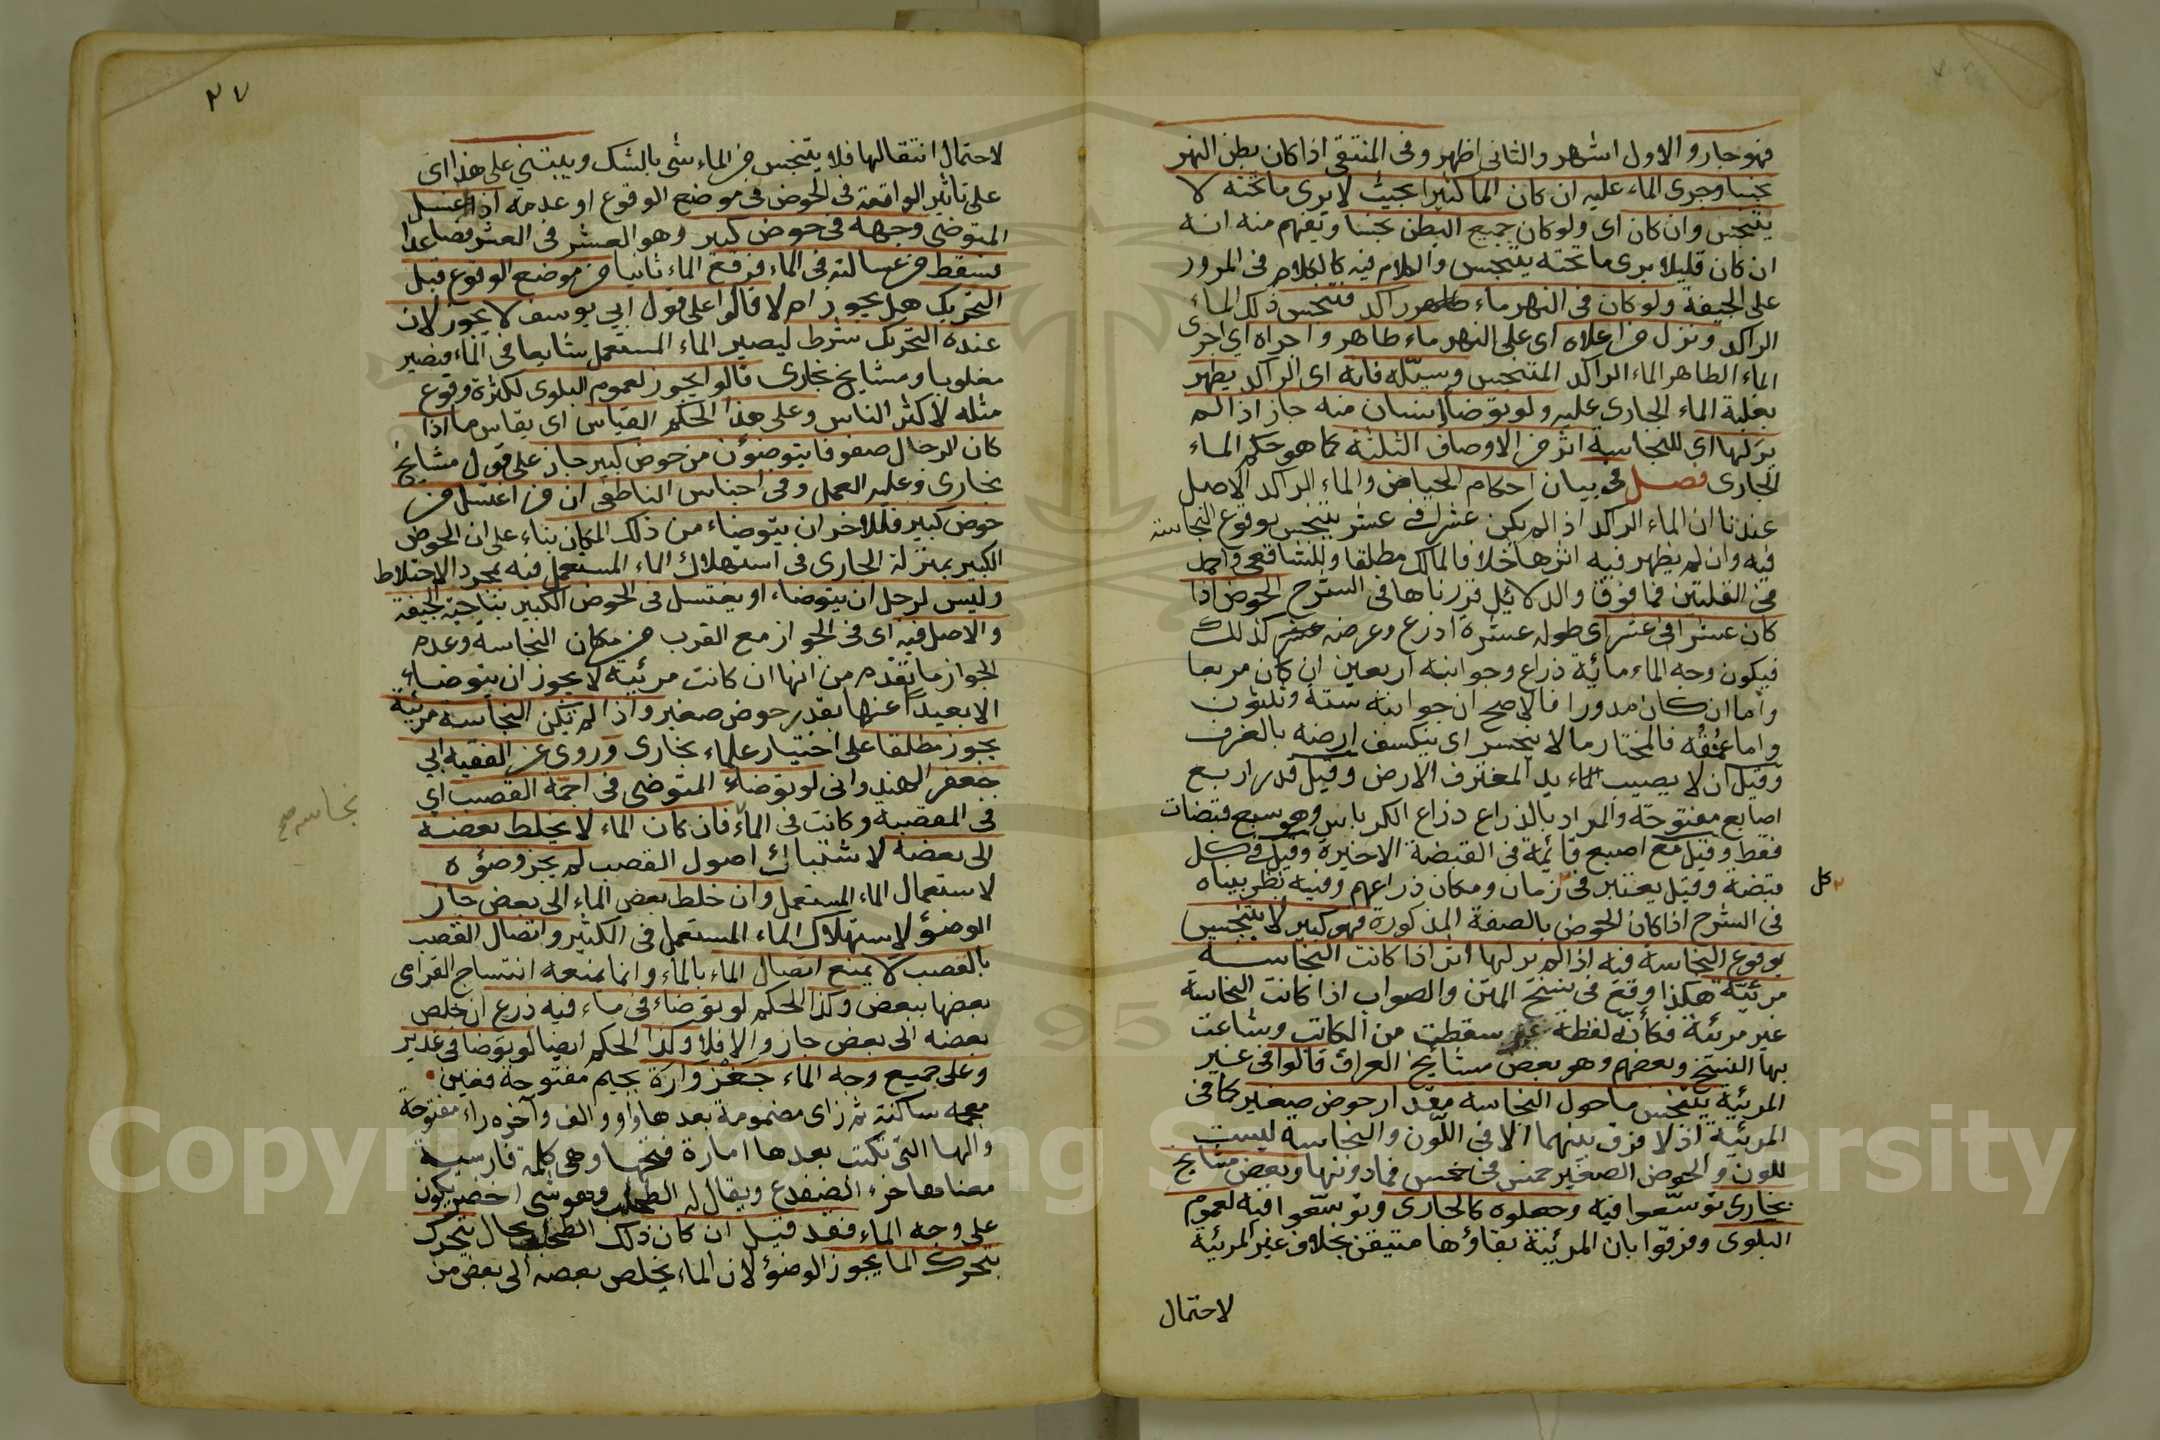 فهو جار والاول اشهر والثانى اظهر وفى المنتقى اذا كان بطن النهر
نجسا وجرى الماء عليه ان كان الما كثيرا بحيث لا يرى ما تحته لا
يتنجس وان كان اى ولو كان جميع البطن نجسا ويفهم منه انه
ان كان قليلا يرى ما تحته يتنجس والكلام فيه كالكلام فى المرور
على الجيفة ولو كان فى النهر ماء راكد فتنجس ذلك الماء
الراكد ونزل من اعلاه اى على النهر ماء طاهر واجراه اي اجرى
الماء الطاهر الماء الراكد المتنجس وسيّله فانه اى الراكد يطهر
بغلبة الماء الجارى عليه ولو توضا انسان منه جاز اذا لم
ير لها اى للنجاسة اثر من الاوصاف الثلثة كما هو حكم الماء
الجارى فصل فى بيان احكام الحياض والماء الراكد الاصل
عندنا ان الماء الراكد اذا لم يكن عشرا فى عشر يتنجس بوقوع النجاسة
فيه وان لم يظهر فيه اثرها خلافا لمالك مطلقا وللشافعى واحمد
فى القلتين فما فوق والدلائل قررناها فى الشرح الحوض اذا
كان عشرا فى عشر اى طوله عشرة اذرع وعرضه كذلك
فيكون وجه الماء مائة ذراع وجوانبه اربعين ان كان مربعا
واما ان كان مدورا فالاصح ان جوانبه ستة وثلثون
واما عمقه فالمختار ما لا ينحسر اى ينكسف ارضه بالغرف
وقيل ان لا يصيب الماء يد المغترف الارض وقيل قدر اربع
اصابع مفتوحة والمراد بالذراع ذراع الكرباس وهو سبع قبضات
فقط وقيل مع اصبع قائمة فى القبضة الاخيرة وقيل فى كل
قبضة وقيل يعتبر فى زمان ومكان ذراعهم وفيه نظر بيناه
كل
فى الشرح اذا كان الحوض بالصفة المذكورة فهو كبير لا يتنجس
بوقوع النجاسة فيه اذا لم ير لها اثر اذا كانت النجاسة
مرئية هكذا وقع فى نسخ المتن والصواب اذا كانت النجاسة
غير مرئية فكأنّ لفظة غير سقطت من الكاتب وشاعت
بها النسخ وبعضهم وهو بعض مشائخ العراق قالوا فى غير
المرئية يتنجس ما حول النجاسة مقدار حوض صغير كما فى
المرئية اذ لا فرق بينهما الا فى اللون والنجاسة ليست
للون والحوض الصغير خمس فى خمس فما دونها وبعض مشايخ
بخارى توسّعوا فيه وجعلوه كالجارى وتوسّعوا فيه لعموم
البلوى وفرقوا بان المرئية بقاؤها متيقن بخلاف غير المرئية
لاحتمال
٢٧
لاحتمال انتقالها فلا يتنجس من الماء شى بالشك ويبتنى على هذا اى
على تاثير الواقعة فى الحوض فى موضع الوقوع او عدمه اذا غسل
المتوضى وجهه فى حوض كبير وهو العشر فى العشر فصاعدا
فسقط من غسالته فى الماء فرفع الماء ثانيا من موضع الوقوع قبل
التحريك هل يجوز ام لا قالوا على قول ابى يوسف لا يجوز لان
عنده التحريك شرط ليصير الماء المستعمل شايعا فى الماء فيصير
مغلوبا ومشايخ بخارى قالوا يجوز لعموم البلوى لكثرة وقوع
مثله لاكثر الناس وعلى هذا الحكم القياس اى يقاس ما اذا
كان الرجال صفوفا يتوضئون من حوض كبير جاز على قول مشايخ
بخارى وعليه العمل وفى اجناس الناطفى ان من اغتسل من
حوض كبير فللاخر ان يتوضاء من ذلك المكان بناء على ان الحوض
الكبير بمنزلة الجارى فى استهلاك الماء المستعمل فيه بمجرد الاختلاط
وليس لرجل ان يتوضاء او يغتسل فى الحوض الكبير بناحية الجيفة
والاصل فيه اى فى الجواز مع القرب من مكان النجاسة وعدم
الجواز ما تقدم من انها ان كانت مرئية لا يجوز ان يتوضاء
الا بعيدا عنها بقدر حوض صغير واذا لم تكن النجاسة مرئية
يجوز مطلقا على اختيار علماء بخارى وروى عن الفقيه ابي
جعفر الهندوانى لو توضاء المتوضى فى اجمة القصب اى
فى المقصبة وكانت فى الماء فان كان الماء لا يخلط بعضه
نجاسه صح
الى بعضه لاشتباك اصول القصب لم يجز وضؤه
لاستعمال الماء المستعمل وان خلط بعض الماء الى بعض جاز
الوضؤ لاستهلاك الماء المستعمل فى الكثير واتصال القصب
بالقصب لا يمنع اتصال الماء بالماء وانما يمنعه انتساج القرامى
بعضها ببعض وكذا الحكم لو توضاء فى ماء فيه زرع ان خلص
بعضه الى بعض جاز والا فلا وكذا الحكم ايضا لو توضا فى غدير
وعلى جميع وجه الماء جغزواره بجيم مفتوحة فغين
معجمة ساكنة ثم زاى مضمومة بعدها واو والف وآخره راء مفتوحة
والها التى تكتب بعدها امارة فتحها وهى كلمة فارسية
معناها خرء الضفدع ويقال له الطحلب وهو شى اخضر يكون
على وجه الماء فقد قيل ان كان ذلك الطحلب بحال يتحرك
بتحرك الما يجوز الوضؤ لان الماء يخلص بعضه الى بعض من
Copyright © King Saud University
1957